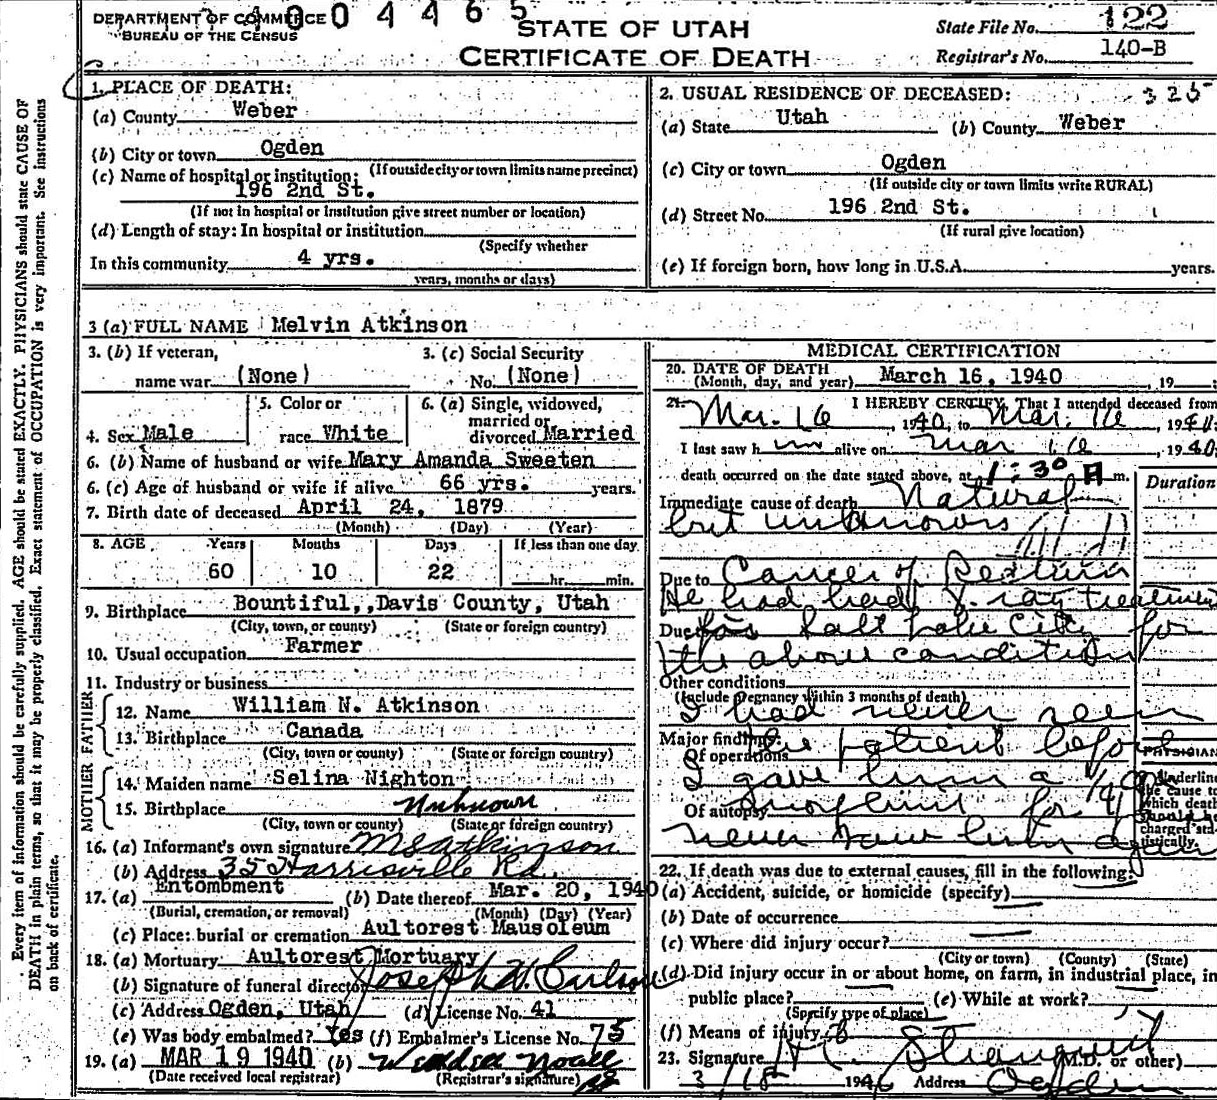 4004465
DEPARTMENT OF COMMERCE
BUREAU OF THE CENSUS
STATE OF UTAH
CERTIFICATE OF DEATH
State File No. 122
Registrar's No. 140-B
1. PLACE OF DEATH:
(a) County Weber
(b) City or town Ogden
(If outside city or town limits name precinct)
(c) Name of hospital or institution:
196 2nd St.
(If not in hospital or institution give street number or location)
(d) Length of stay: In hospital or institution
(Specify whether
In this community 4 yrs.
years, months or days)
2. USUAL RESIDENCE OF DECEASED: 325
(a) State Utah (b) County Weber
(c) City or town Ogden
(If outside city or town limits write RURAL)
(d) Street No. 196 2nd St.
(If rural give location)
(e) If foreign born, how long in U.S.A. years.
3 (a) FULL NAME Melvin Atkinson
3. (b) If veteran,
name war (None)
3. (c) Social Security
No. (None)
4. Sex Male
5. Color or
race White
6. (a) Single, widowed,
married or
divorced Married
6. (b) Name of husband or wife Mary Amanda Sweeten
6. (c) Age of husband or wife if alive 66 yrs. years.
7. Birth date of deceased April 24, 1879
(Month) (Day) (Year)
8. AGE Years Months Days If less than one day
60 10 22 hr. min.
9. Birthplace Bountiful,,Davis County, Utah
(City, town, or county) (State or foreign country)
10. Usual occupation Farmer
11. Industry or business
FATHER
12. Name William N. Atkinson
13. Birthplace Canada
(City, town or county) (State or foreign country)
MOTHER
14. Maiden name Selina Nighton
15. Birthplace Unknown
(City, town or county) (State or foreign country)
16. (a) Informant's own signature M S Atkinson
(b) Address 35 Harrisville Rd.
17. (a) Entombment (b) Date thereof Mar. 20, 1940
(Burial, cremation, or removal) (Month) (Day) (Year)
(c) Place: burial or cremation Aultorest Mausoleum
18. (a) Mortuary Aultorest Mortuary
(b) Signature of funeral director Joseph
(c) Address Ogden, Utah (d) License No. 41
(e) Was body embalmed? Yes (f) Embalmer's License No. 75
19. (a) MAR 19 1940 (b)
(Date received local registrar) (Registrar's signature)
MEDICAL CERTIFICATION
20. DATE OF DEATH
(Month, day, and year) March 16, 1940, 19
21. I HEREBY CERTIFY, That I attended deceased from
Mar. 16, 1940, to Mar. 16, 1940;
I last saw him alive on Mar 16, 1940;
death occurred on the date stated above, at 1:30 A m.
Duration
Immediate cause of death Natural
but unknown
Due to Cancer of Rectum
He had had X-ray treatment
Due to
in Salt Lake City for
the above condition
Other conditions
(Include pregnancy within 3 months of death)
I had never seen
Major findings:
the patient before
Of operations
I gave him a 1/4
Of autopsy
morphine for
never saw him again
PHYSICIAN
Underline
the cause to
which death
should be
charged sta-
tistically.
22. If death was due to external causes, fill in the following:
(a) Accident, suicide, or homicide (specify)
(b) Date of occurrence
(c) Where did injury occur?
(City or town) (County) (State)
(d) Did injury occur in or about home, on farm, in industrial place, in
public place? (e) While at work?
(Specify type of place)
(f) Means of injury
23. Signature (M.D. or other)
3/18 1940 Address Ogden
Every item of information should be carefully supplied. AGE should be stated EXACTLY. PHYSICIANS should state CAUSE OF
DEATH in plain terms, so that it may be properly classified. Exact statement of OCCUPATION is very important. See instructions
on back of certificate.